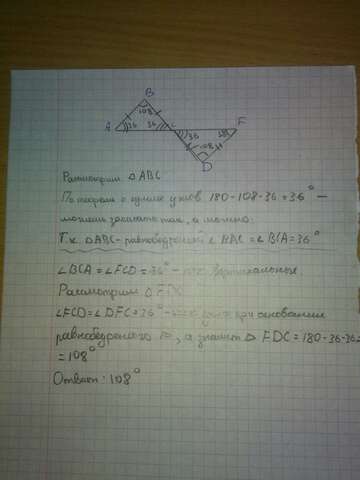 B
108
A 36 36 C F
36
108
D
Рассмотрим △ ABC
По теореме о сумме углов 180-108-36=36° –
можем записать так, а можно:
Т.к △ABC - равнобедренный ∠ BAC = ∠ BCA = 36°
∠BCA = ∠FCD = 36° - как вертикальные
Рассмотрим △ FDC
∠FCD = ∠DFC = 36° - углы при основании
равнобедреного △, а значит △ FDC = 180-36-36=
= 108°
Ответ: 108°